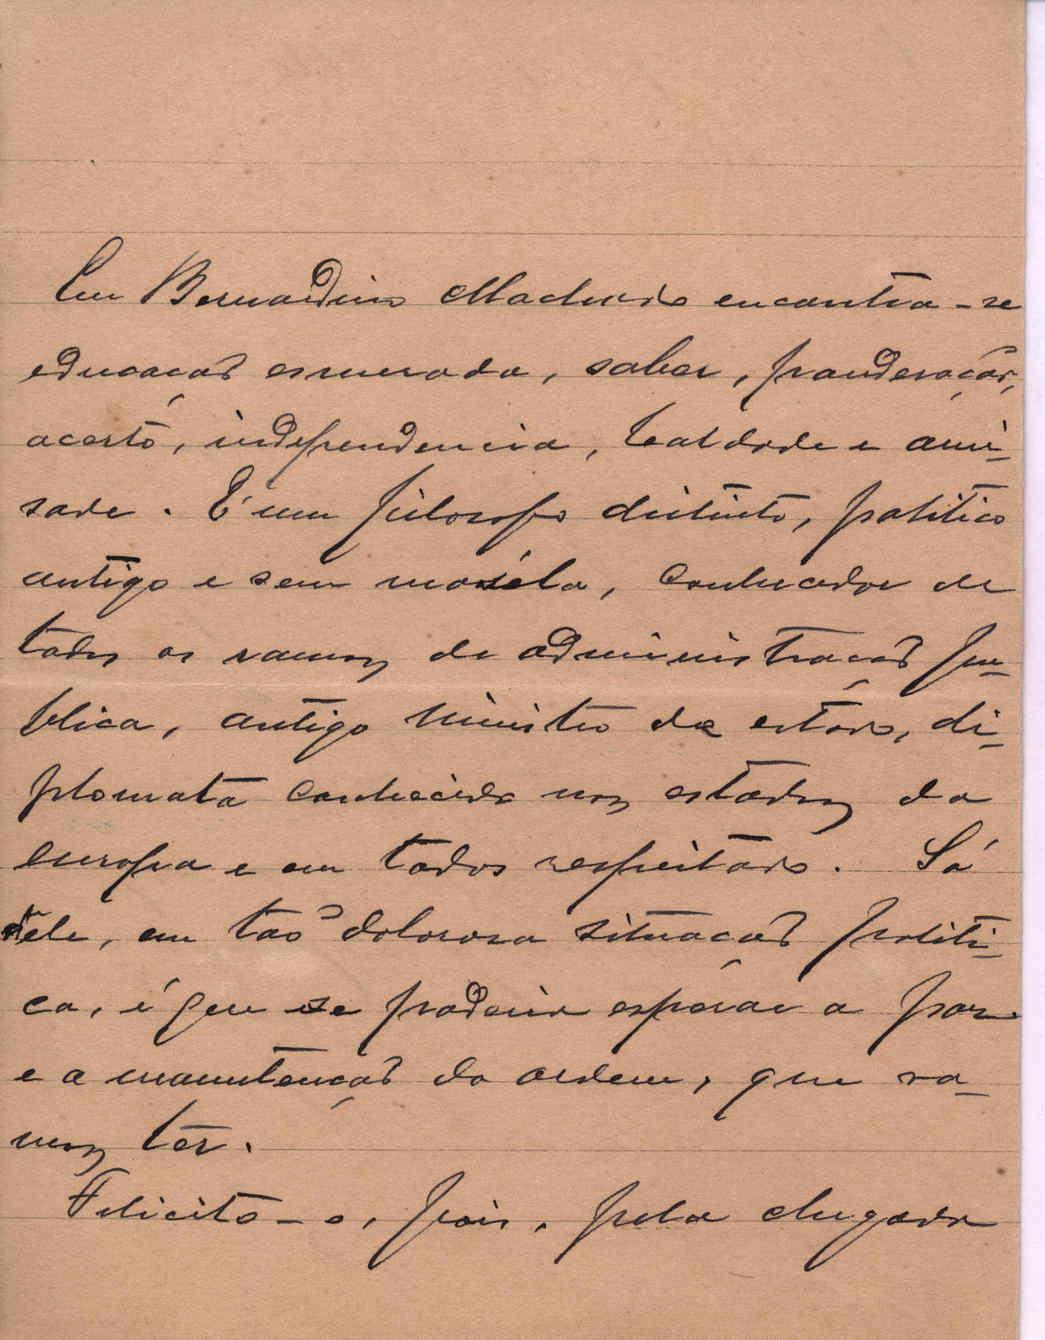 Em Bernardino Machado encontra-se
educação esmerada, saber, ponderação,
acerto, independencia, lealdade e ami-
sade. É um filosofo distinto, politico
antigo e sem macéla, conhecedor de
todos os ramos de administração pu-
blica, antigo ministro de estado, di-
plomata conhecido nos estados da
europa e em todos respeitado. Só
dele, em tão dolorosa situação politi-
ca, é que se poderia esperar a paz
e a manutenção da ordem, que va-
mos ter.
Felicito-o, pois, pela chegada